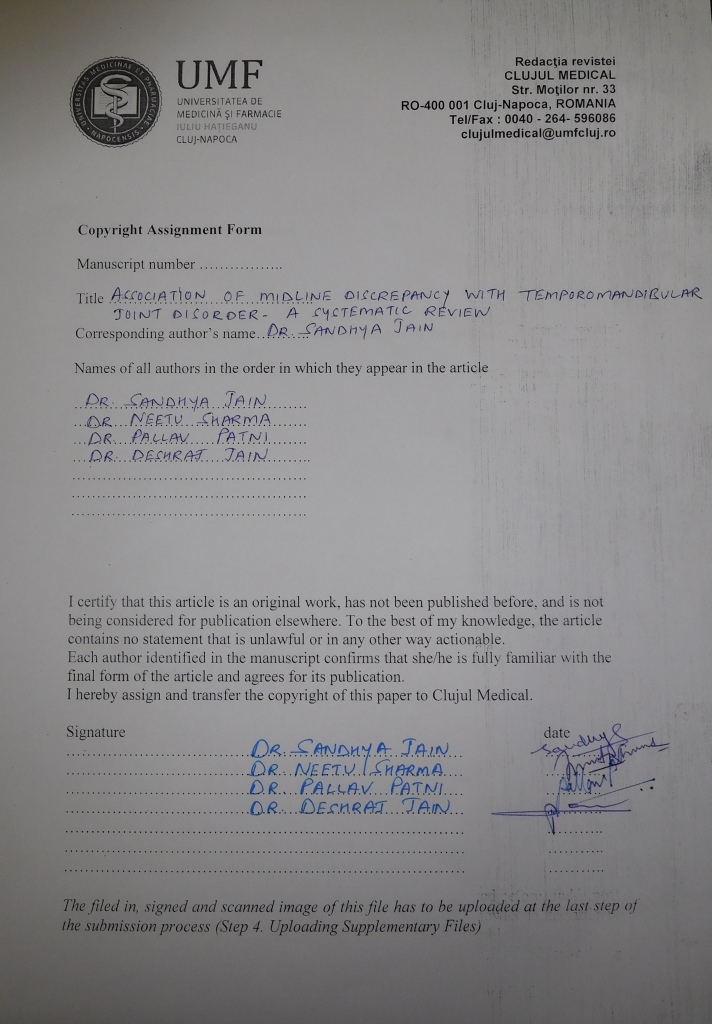 UNIVERSITAS MEDICINAE ET PHARMACIAE NAPOCENSIS
UMF
UNIVERSITATEA DE
MEDICINĂ ŞI FARMACIE
IULIU HAŢIEGANU
CLUJ-NAPOCA
Redacţia revistei
CLUJUL MEDICAL
Str. Moţilor nr. 33
RO-400 001 Cluj-Napoca, ROMANIA
Tel/Fax : 0040 - 264- 596086
clujulmedical@umfcluj.ro
Copyright Assignment Form
Manuscript number ................
Title ASSOCIATION OF MIDLINE DISCREPANCY WITH TEMPOROMANDIBULAR
JOINT DISORDER- A SYSTEMATIC REVIEW
Corresponding author's name..DR. SANDHYA JAIN
Names of all authors in the order in which they appear in the article
DR. SANDHYA JAIN
DR NEETU SHARMA
DR. PALLAV PATNI
DR. DESHRAJ JAIN
I certify that this article is an original work, has not been published before, and is not
being considered for publication elsewhere. To the best of my knowledge, the article
contains no statement that is unlawful or in any other way actionable.
Each author identified in the manuscript confirms that she/he is fully familiar with the
final form of the article and agrees for its publication.
I hereby assign and transfer the copyright of this paper to Clujul Medical.
Signature date
DR. SANDHYA JAIN
DR. NEETU SHARMA
DR. PALLAV PATNI
DR. DESHRAJ JAIN
The filed in, signed and scanned image of this file has to be uploaded at the last step of
the submission process (Step 4. Uploading Supplementary Files)